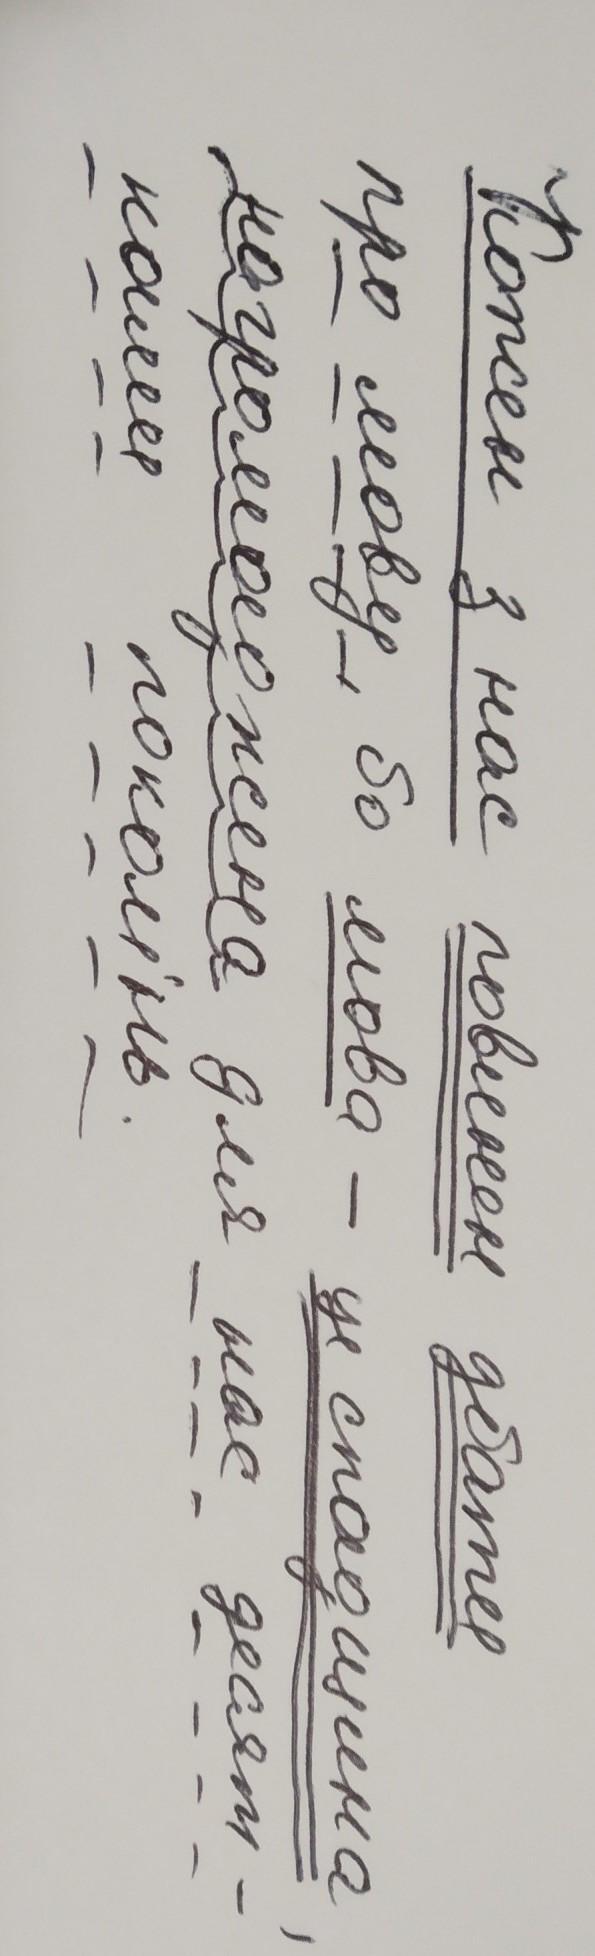 Кожен з нас повинен дбати
про мову, бо мова – це спадщина,
нагромаджена для нас десят-
ками поколінь.